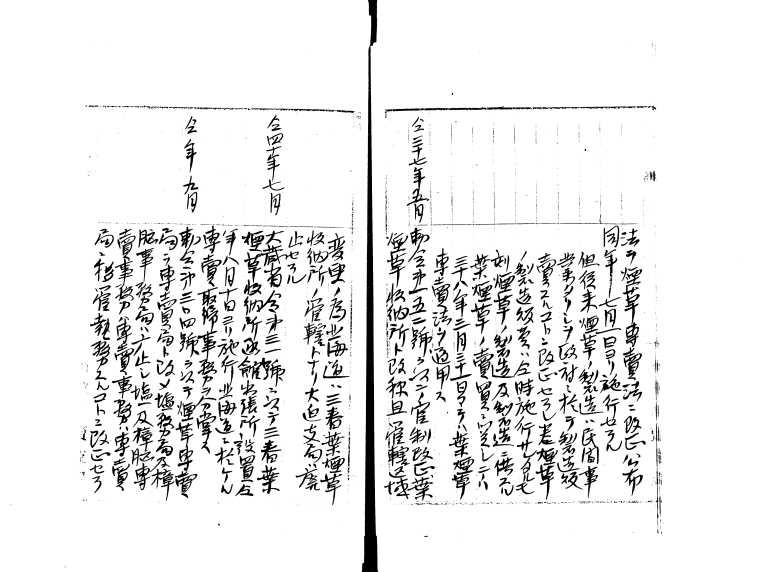 法ヲ煙草専賣法ニ改正公布
同年七月一日ヨリ施行セラル
但従来煙草ノ製造ハ民間事
業タリシヲ政府ニ於テ製造販
賣スルコトニ改正セラレ巻煙草
ノ製造販賣ハ仝時施行サレタルモ
刻煙草ノ製造及製造ニ供スル
葉煙草ノ賣買ニ関シテハ
三十八年三月三十一日マテハ葉煙草
専賣法ヲ適用ス
仝三十七年五月
勅令第一五二號ニヨリ官制改正葉
煙草収納所ト改称且管轄区域
変更ノ為北海道ハ三春葉煙草
収納所ノ管轄トナリ大迫支局ハ廃
止セラル
仝四十年七月
大蔵省令第三一號ニ以テ三春葉
煙草収納所函館出張所ヲ設置仝
年八月十日ヨリ施行北海道ニ於ケル
専賣取締事務ヲ分掌ス
仝年九月
勅令第三〇四號ニ以テ煙草専賣
局ヲ専賣局ト改メ塩務局及樟
脳事務局ハ廃止シ塩及樟脳専
賣事務ハ専賣事務ハ専賣
局ニ移管執務スルコトニ改正セラ